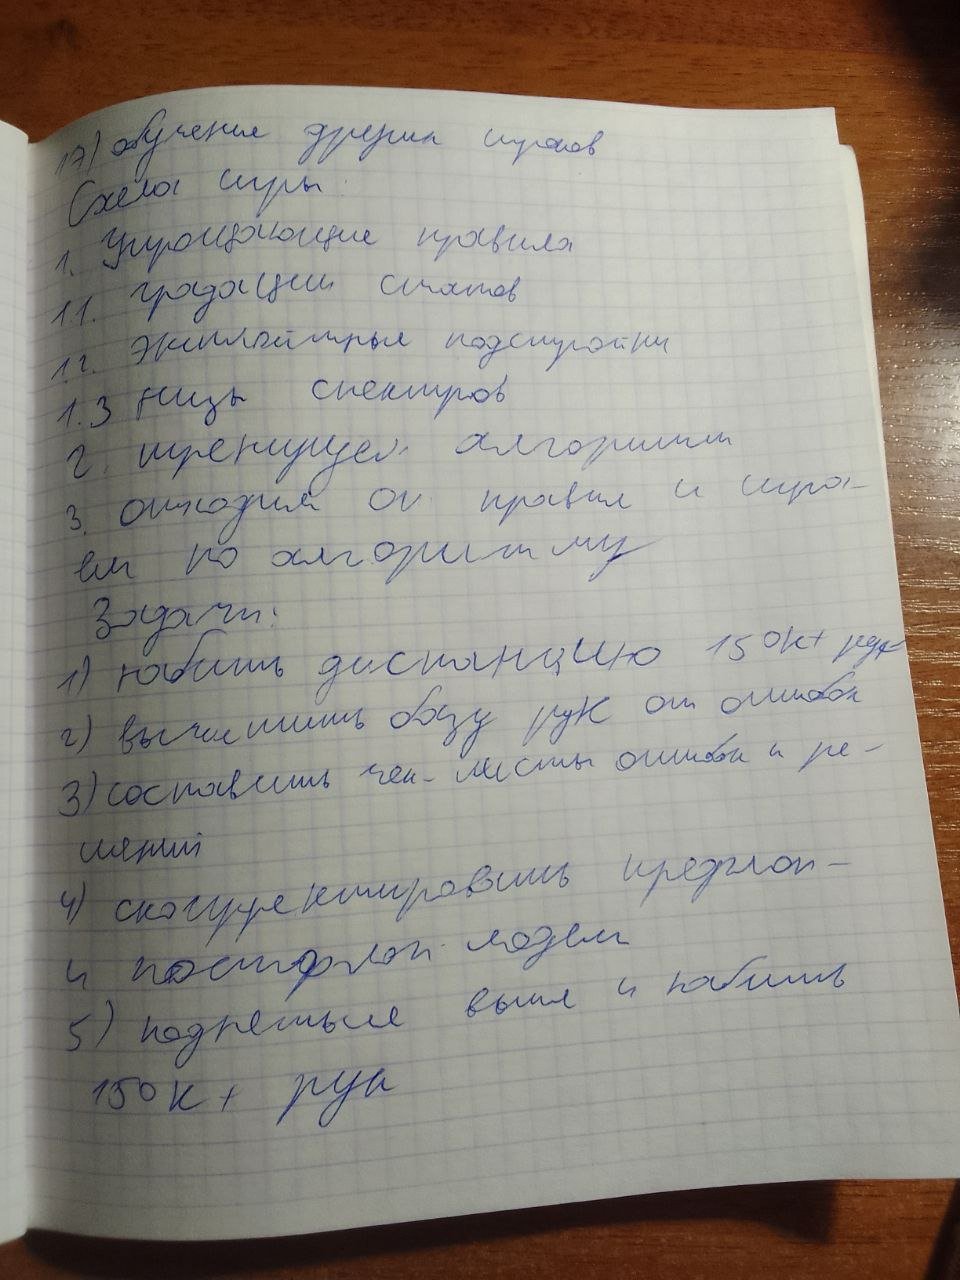 17) обучение других игроков
Схема игры
1. Упрощающие правила
1.1. градации статов
1.2. эксплойтные подстройки
1.3 низы спектров
2. тренируем алгоритм
3. отходим от правил и игра-
ем по алгоритму
Задачи:
1) набить дистанцию 150к+ рук
2) вычистить базу рук от ошибок
3) составить чек-листы ошибок и ре-
шений
4) скорректировать префлоп-
и постфлоп модели
5) поднятые выше и набить
150к+ рук